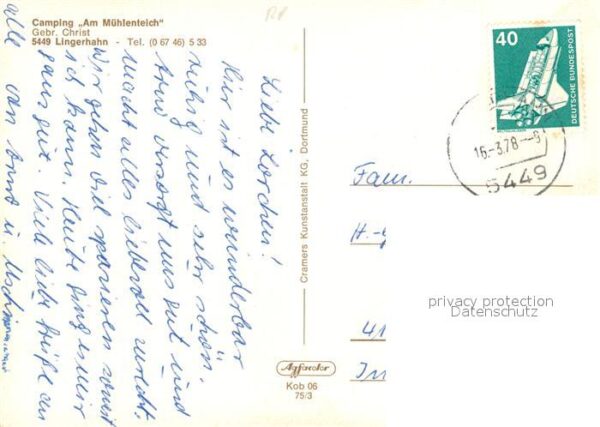 Camping „Am Mühlenteich"
Gebr. Christ
5449 Lingerhahn - Tel. (0 67 46) 5 33
Liebe Lorchen!
Hier ist es wunderbar
ruhig und sehr schön.
versorgt uns gut und
macht alles liebevoll zurecht.
Wir gehen viel spazieren soweit
ich kann. Heute ging es mir
ganz gut. Viele liebe Grüße an
alle von
Cramers Kunstanstalt KG, Dortmund
Agfacolor
Kob 06
75/3
40
DEUTSCHE BUNDESPOST
16.-3.78-9
5449
Fam.
H.-
41
privacy protection
Datenschutz